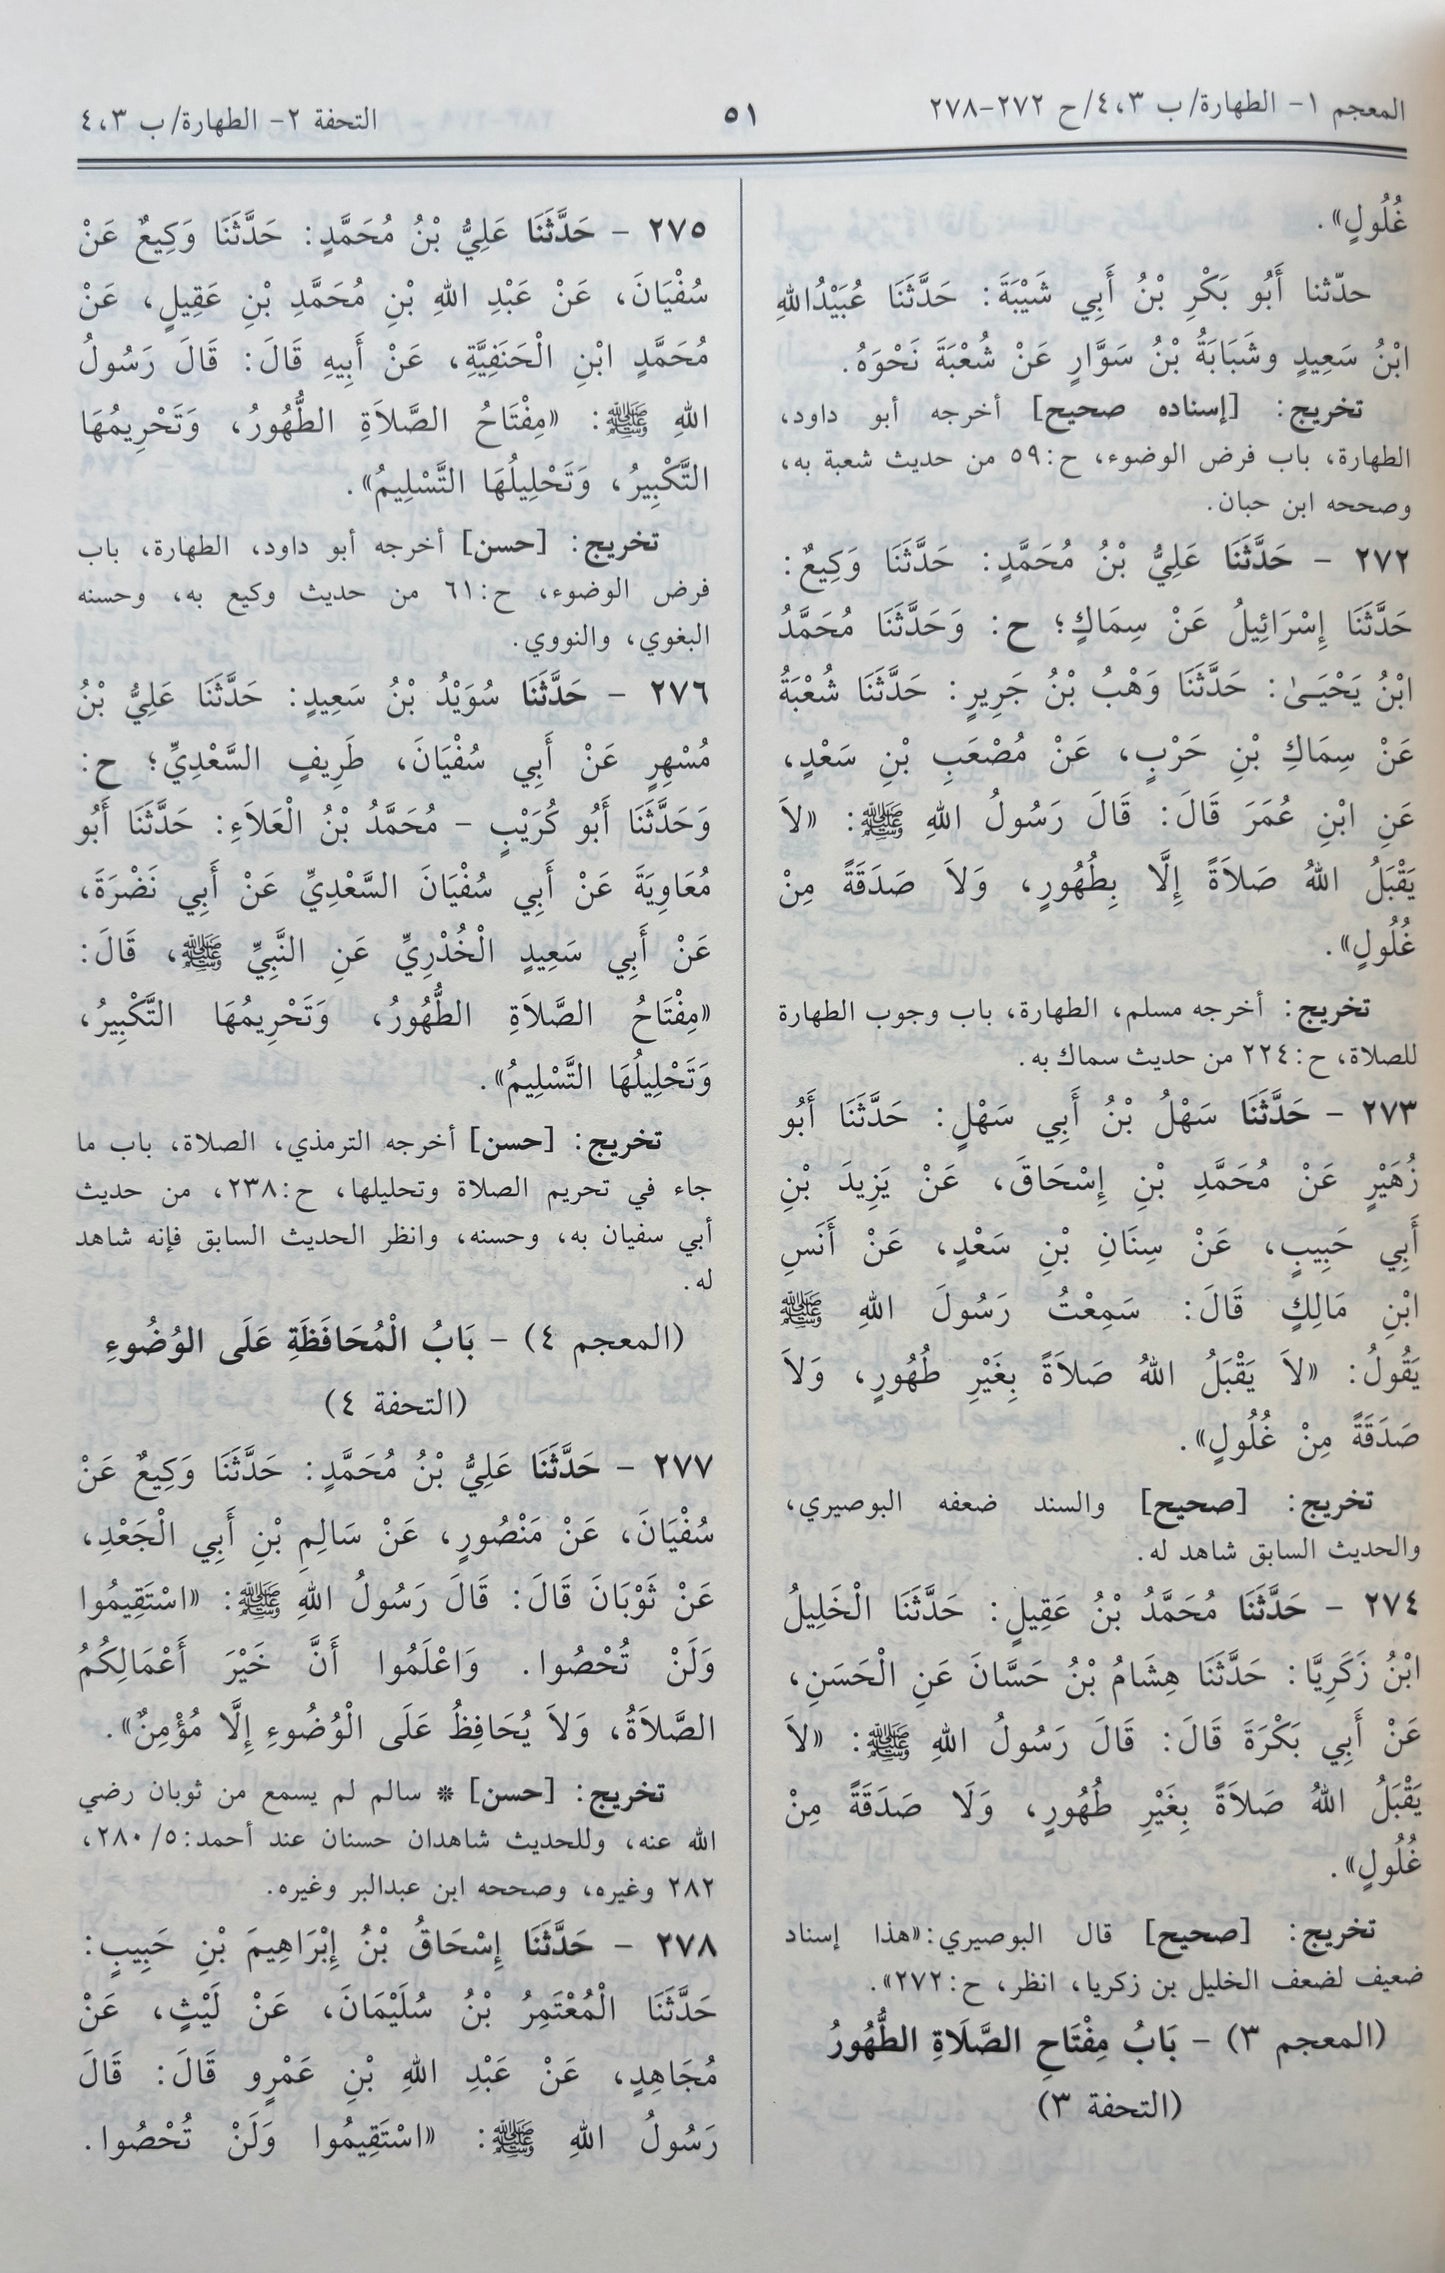 المعجم ١- الطهارة/ ب ٣، ٤/ ح ٢٧٢-٢٧٨
٥١
التحفة ٢- الطهارة/ ب ٣، ٤
غُلُولٍ».
حدّثنا أَبُو بَكْرِ بْنُ أَبِي شَيْبَةَ: حَدَّثَنَا عُبَيْدُاللهِ
ابْنُ سَعِيدٍ وشَبَابَةُ بْنُ سَوَّارٍ عَنْ شُعْبَةَ نَحْوَهُ.
تخريج: [إسناده صحيح] أخرجه أبو داود،
الطهارة، باب فرض الوضوء، ح:٥٩ من حديث شعبة به،
وصححه ابن حبان.
٢٧٢ - حَدَّثَنَا عَلِيُّ بْنُ مُحَمَّدٍ: حَدَّثَنَا وَكِيعٌ:
حَدَّثَنَا إِسْرَائِيلُ عَنْ سِمَاكٍ؛ ح: وَحَدَّثَنَا مُحَمَّدُ
ابْنُ يَحْيَىٰ: حَدَّثَنَا وَهْبُ بْنُ جَرِيرٍ: حَدَّثَنَا شُعْبَةُ
عَنْ سِمَاكِ بْنِ حَرْبٍ، عَنْ مُصْعَبِ بْنِ سَعْدٍ،
عَنِ ابْنِ عُمَرَ قَالَ: قَالَ رَسُولُ اللهِ ﷺ: «لاَ
يَقْبَلُ اللهُ صَلاَةً إِلَّا بِطُهُورٍ، وَلاَ صَدَقَةً مِنْ
غُلُولٍ».
تخريج: أخرجه مسلم، الطهارة، باب وجوب الطهارة
للصلاة، ح:٢٢٤ من حديث سماك به.
٢٧٣ - حَدَّثَنَا سَهْلُ بْنُ أَبِي سَهْلٍ: حَدَّثَنَا أَبُو
زُهَيْرٍ عَنْ مُحَمَّدِ بْنِ إِسْحَاقَ، عَنْ يَزِيدَ بْنِ
أَبِي حَبِيبٍ، عَنْ سِنَانِ بْنِ سَعْدٍ، عَنْ أَنَسِ
ابْنِ مَالِكٍ قَالَ: سَمِعْتُ رَسُولَ اللهِ ﷺ
يَقُولُ: «لاَ يَقْبَلُ اللهُ صَلاَةً بِغَيْرِ طُهُورٍ، وَلاَ
صَدَقَةً مِنْ غُلُولٍ».
تخريج: [صحيح] والسند ضعفه البوصيري،
والحديث السابق شاهد له.
٢٧٤ - حَدَّثَنَا مُحَمَّدُ بْنُ عَقِيلٍ: حَدَّثَنَا الْخَلِيلُ
ابْنُ زَكَرِيَّا: حَدَّثَنَا هِشَامُ بْنُ حَسَّانَ عَنِ الْحَسَنِ،
عَنْ أَبِي بَكْرَةَ قَالَ: قَالَ رَسُولُ اللهِ ﷺ: «لاَ
يَقْبَلُ اللهُ صَلاَةً بِغَيْرِ طُهُورٍ، وَلَا صَدَقَةً مِنْ
غُلُولٍ».
تخريج: [صحيح] قال البوصيري:«هذا إسناد
ضعيف لضعف الخليل بن زكريا، انظر، ح:٢٧٢».
(المعجم ٣) - بَابُ مِفْتَاحِ الصَّلَاةِ الطُّهُورُ
(التحفة ٣)
٢٧٥ - حَدَّثَنَا عَلِيُّ بْنُ مُحَمَّدٍ: حَدَّثَنَا وَكِيعٌ عَنْ
سُفْيَانَ، عَنْ عَبْدِ اللهِ بْنِ مُحَمَّدِ بْنِ عَقِيلٍ، عَنْ
مُحَمَّدٍ ابْنِ الْحَنَفِيَّةِ، عَنْ أَبِيهِ قَالَ: قَالَ رَسُولُ
اللهِ ﷺ: «مِفْتَاحُ الصَّلاَةِ الطُّهُورُ، وَتَحْرِيمُهَا
التَّكْبِيرُ، وَتَحْلِيلُهَا التَّسْلِيمُ».
تخريج: [حسن] أخرجه أبو داود، الطهارة، باب
فرض الوضوء، ح:٦١ من حديث وكيع به، وحسنه
البغوي، والنووي.
٢٧٦ - حَدَّثَنَا سُوَيْدُ بْنُ سَعِيدٍ: حَدَّثَنَا عَلِيُّ بْنُ
مُسْهِرٍ عَنْ أَبِي سُفْيَانَ، طَرِيفٍ السَّعْدِيِّ؛ ح:
وَحَدَّثَنَا أَبُو كُرَيْبٍ - مُحَمَّدُ بْنُ الْعَلاَءِ: حَدَّثَنَا أَبُو
مُعَاوِيَةَ عَنْ أَبِي سُفْيَانَ السَّعْدِيِّ عَنْ أَبِي نَضْرَةَ،
عَنْ أَبِي سَعِيدٍ الْخُدْرِيِّ عَنِ النَّبِيِّ ﷺ، قَالَ:
«مِفْتَاحُ الصَّلاَةِ الطُّهُورُ، وَتَحْرِيمُهَا التَّكْبِيرُ،
وَتَحْلِيلُهَا التَّسْلِيمُ».
تخريج: [حسن] أخرجه الترمذي، الصلاة، باب ما
جاء في تحريم الصلاة وتحليلها، ح:٢٣٨، من حديث
أبي سفيان به، وحسنه، وانظر الحديث السابق فإنه شاهد
له.
(المعجم ٤) - بَابُ الْمُحَافَظَةِ عَلَى الوُضُوءِ
(التحفة ٤)
٢٧٧ - حَدَّثَنَا عَلِيُّ بْنُ مُحَمَّدٍ: حَدَّثَنَا وَكِيعٌ عَنْ
سُفْيَانَ، عَنْ مَنْصُورٍ، عَنْ سَالِمِ بْنِ أَبِي الْجَعْدِ،
عَنْ ثَوْبَانَ قَالَ: قَالَ رَسُولُ اللهِ ﷺ: «اسْتَقِيمُوا
وَلَنْ تُحْصُوا. وَاعْلَمُوا أَنَّ خَيْرَ أَعْمَالِكُمُ
الصَّلاَةُ، وَلاَ يُحَافِظُ عَلَى الْوُضُوءِ إِلَّا مُؤْمِنٌ».
تخريج: [حسن] * سالم لم يسمع من ثوبان رضي
الله عنه، وللحديث شاهدان حسنان عند أحمد:٥/ ٢٨٠،
٢٨٢ وغيره، وصححه ابن عبدالبر وغيره.
٢٧٨ - حَدَّثَنَا إِسْحَاقُ بْنُ إِبْرَاهِيمَ بْنِ حَبِيبٍ:
حَدَّثَنَا الْمُعْتَمِرُ بْنُ سُلَيْمَانَ، عَنْ لَيْثٍ، عَنْ
مُجَاهِدٍ، عَنْ عَبْدِ اللهِ بْنِ عَمْرٍو قَالَ: قَالَ
رَسُولُ اللهِ ﷺ: «اسْتَقِيمُوا وَلَنْ تُحْصُوا.